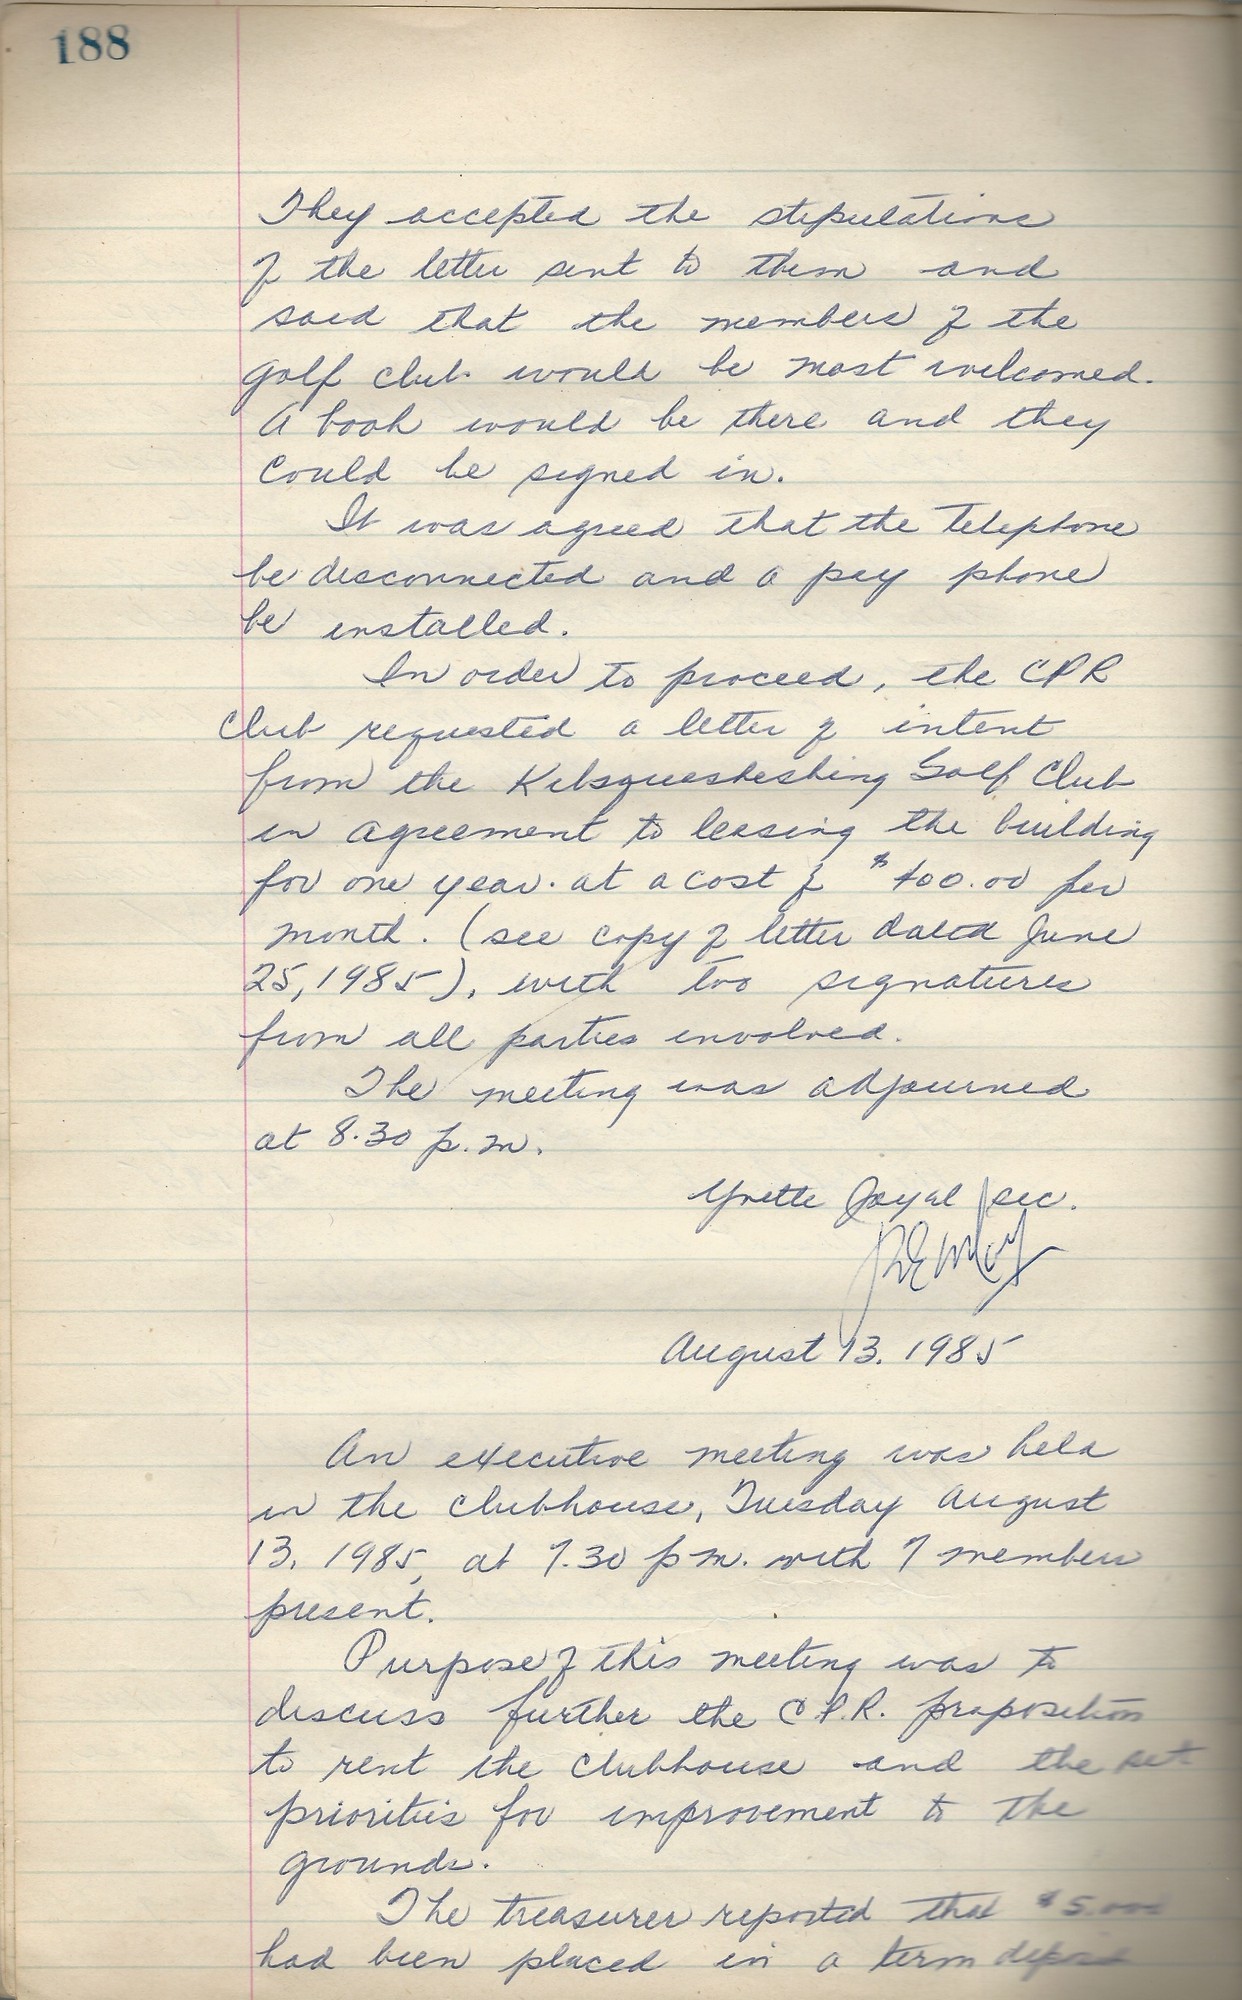 188
They accepted the stipulations
of the letter sent to them and
said that the members of the
golf club would be most welcomed.
A book would be there and they
could be signed in.
It was agreed that the telephone
be disconnected and a pay phone
be installed.
In order to proceed, the CPR
Club requested a letter of intent
from the Kebsquasheshing Golf Club
in agreement to leasing the building
for one year. at a cost of $400.00 per
month. (see copy of letter dated June
25, 1985), with two signatures
from all parties involved.
The meeting was adjourned
at 8.30 p.m.
Yvette Joyal sec.
August 13, 1985
An executive meeting was held
in the clubhouse, Tuesday August
13, 1985, at 7.30 p.m. with 7 members
present.
Purpose of this meeting was to
discuss further the C.P.R. proposition
to rent the clubhouse and the set
priorities for improvement to the
grounds.
The treasurer reported that $5.000
had been placed in a term deposit